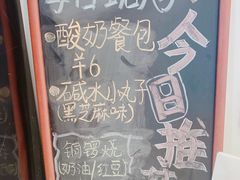 今日推
·酸奶餐包
¥6
·碱水小丸子
(黑芝麻味)
铜锣烧
(奶油/红豆)